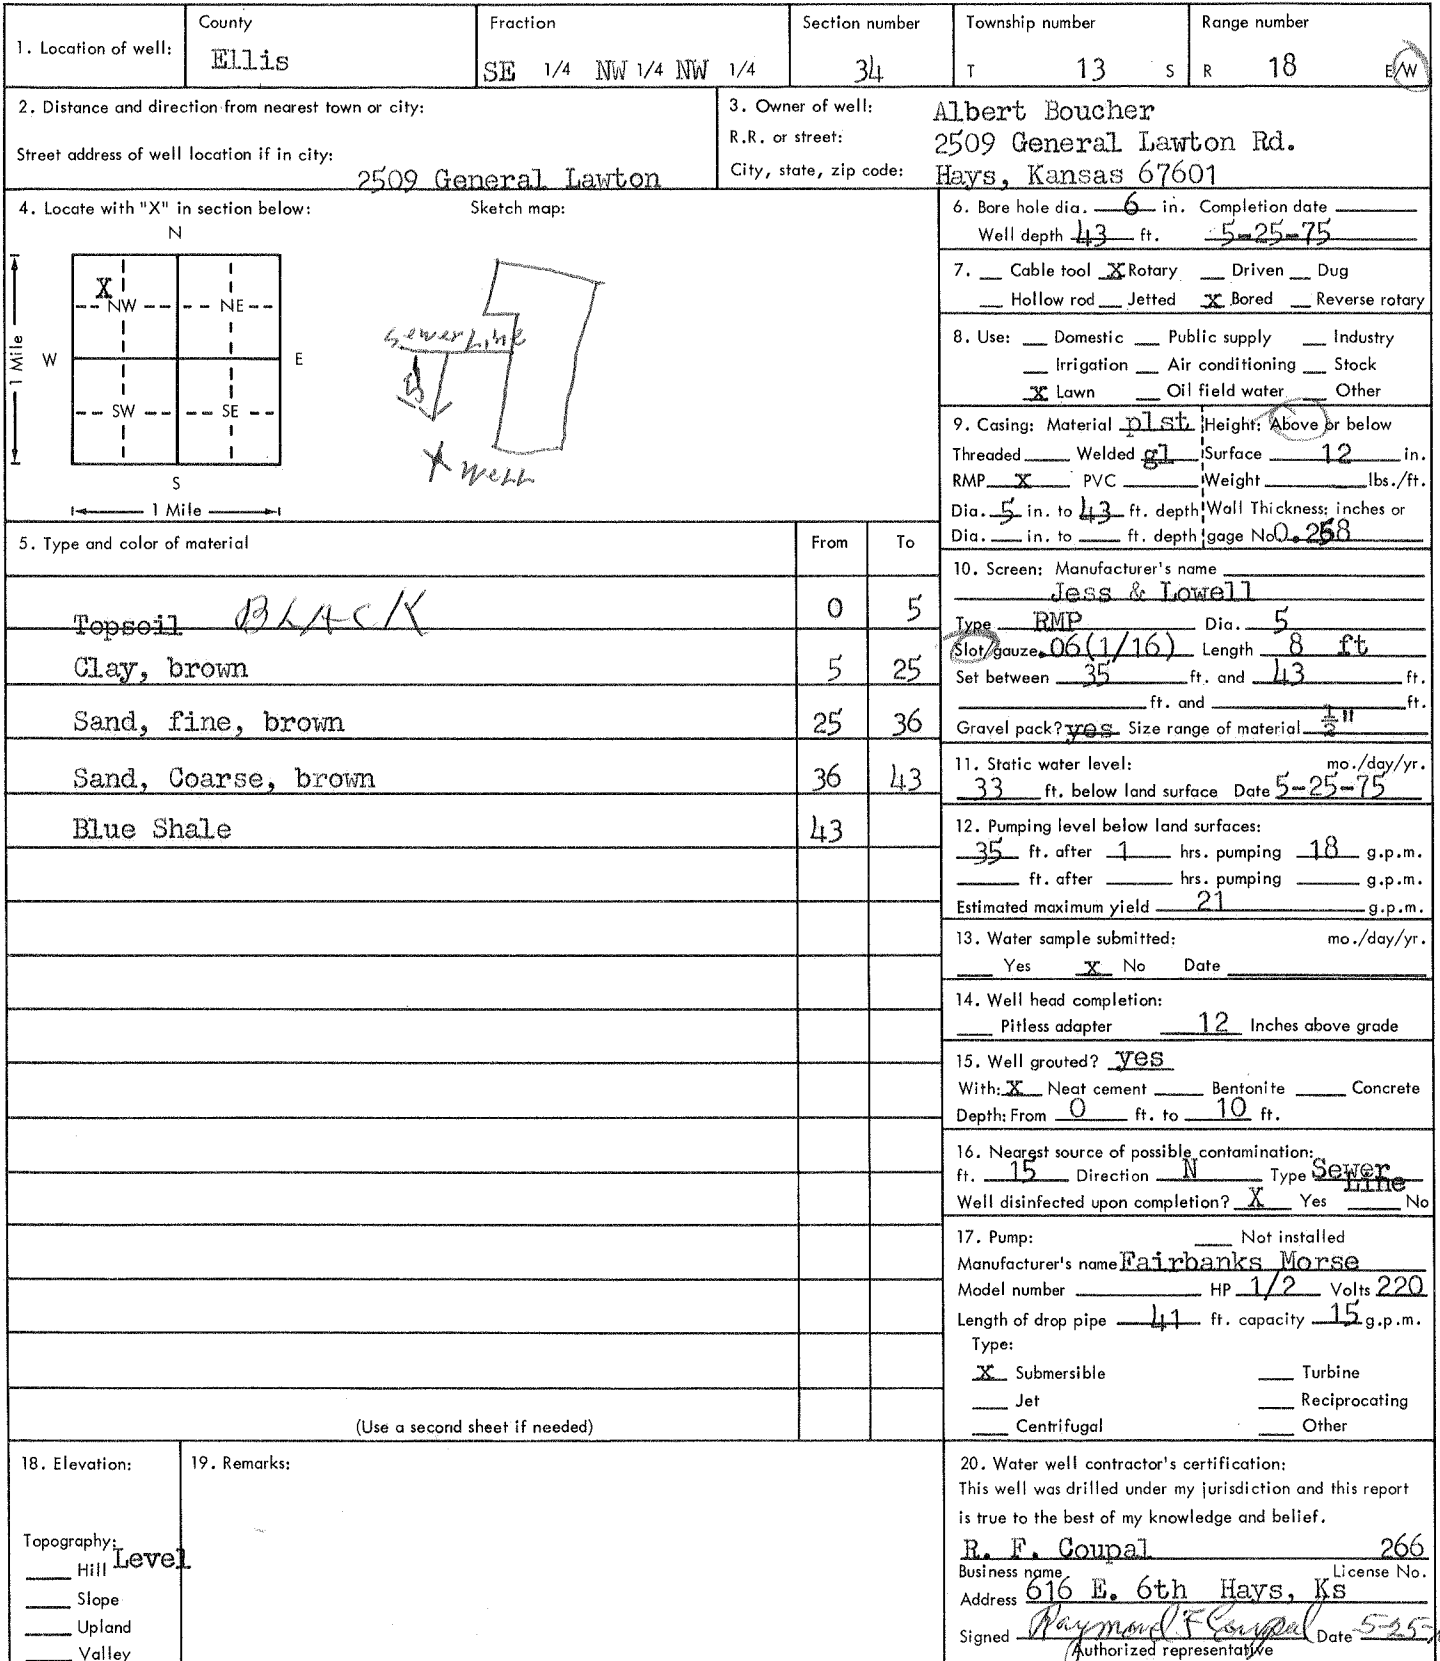 1. Location of well:
County
Ellis
Fraction
SE 1/4 NW 1/4 NW 1/4
Section number
34
Township number
T 13 S
Range number
R 18 E/W
2. Distance and direction from nearest town or city:
Street address of well location if in city:
2509 General Lawton
3. Owner of well: Albert Boucher
R.R. or street: 2509 General Lawton Rd.
City, state, zip code: Hays, Kansas 67601
4. Locate with "X" in section below:
N
X
NW NE
W E
SW SE
S
1 Mile
1 Mile
Sketch map:
Sewer Line
X Well
5. Type and color of material From To
Topsoil BLACK 0 5
Clay, brown 5 25
Sand, fine, brown 25 36
Sand, Coarse, brown 36 43
Blue Shale 43
(Use a second sheet if needed)
6. Bore hole dia. 6 in. Completion date
Well depth 43 ft. 5-25-75
7. Cable tool X Rotary Driven Dug
Hollow rod Jetted X Bored Reverse rotary
8. Use: Domestic Public supply Industry
Irrigation Air conditioning Stock
X Lawn Oil field water Other
9. Casing: Material plst Height: Above or below
Threaded Welded gl Surface 12 in.
RMP X PVC Weight lbs./ft.
Dia. 5 in. to 43 ft. depth Wall Thickness: inches or
Dia. in. to ft. depth gage No 0.258
10. Screen: Manufacturer's name
Jess & Lowell
Type RMP Dia. 5
Slot/gauze .06(1/16) Length 8 ft
Set between 35 ft. and 43 ft.
ft. and ft.
Gravel pack? yes Size range of material 1/2"
11. Static water level: mo./day/yr.
33 ft. below land surface Date 5-25-75
12. Pumping level below land surfaces:
35 ft. after 1 hrs. pumping 18 g.p.m.
ft. after hrs. pumping g.p.m.
Estimated maximum yield 21 g.p.m.
13. Water sample submitted: mo./day/yr.
Yes X No Date
14. Well head completion:
Pitless adapter 12 Inches above grade
15. Well grouted? yes
With: X Neat cement Bentonite Concrete
Depth: From 0 ft. to 10 ft.
16. Nearest source of possible contamination:
ft. 15 Direction N Type Sewer Line
Well disinfected upon completion? X Yes No
17. Pump: Not installed
Manufacturer's name Fairbanks Morse
Model number HP 1/2 Volts 220
Length of drop pipe 41 ft. capacity 15 g.p.m.
Type:
X Submersible Turbine
Jet Reciprocating
Centrifugal Other
18. Elevation:
Topography:
Hill Level
Slope
Upland
Valley
19. Remarks:
20. Water well contractor's certification:
This well was drilled under my jurisdiction and this report
is true to the best of my knowledge and belief.
R. F. Coupal 266
Business name License No.
Address 616 E. 6th Hays, Ks
Signed Raymond F Coupal Date 5-25-
Authorized representative